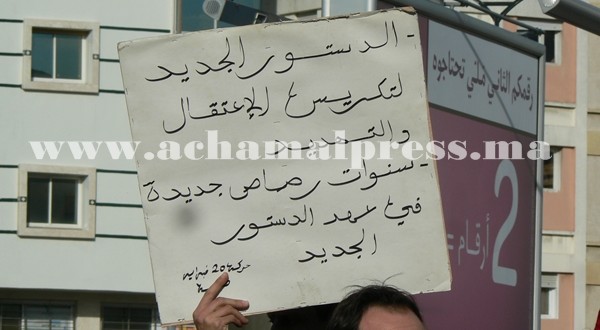 - الدستور الجديد
لتكريس الإعتقال
والتهديد
- سنوات رصاص جديدة
في عهد الدستور
الجديد
حركة 20 فبراير
رقمكم الثاني فلي تحتاجوه
2
أرقام =
www.achamalpress.ma